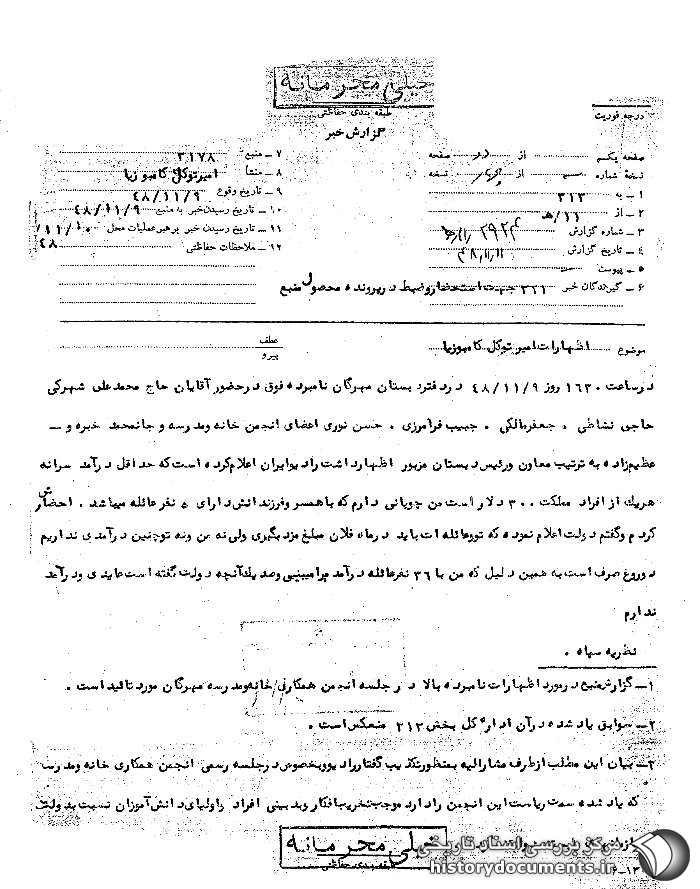 خیلی محرمانه
طبقه بندی حفاظتی
گزارش خبر
درجه فوریت
صفحه یکم از دو صفحه
نسخه شماره از نسخه
۱ ـ به ۳۱۳
۲ ـ از ۱۱/ه‍
۳ ـ شماره گزارش ۲۹۲۴
۴ ـ تاریخ گزارش ۴۸/۱۱/۱۱
۵ ـ پیوست
۶ ـ گیرندگان خبر ۳۲۱ جهت استحضار وضبط در پرونده محصول منبع
۷ ـ منبع ۳۱۷۸
۸ ـ منشأ امیرتوکل کامبوزیا
۹ ـ تاریخ وقوع ۴۸/۱۱/۹
۱۰ ـ تاریخ رسیدن خبر به منبع ۴۸/۱۱/۹
۱۱ ـ تاریخ رسیدن خبر برهبر عملیات محل ۱۱/۱۰/
۴۸
۱۲ ـ ملاحظات حفاظتی
موضوع اظهارات امیر توکل کامبوزیا
عطف
پیرو
در ساعت ۱۶۳۰ روز ۴۸/۱۱/۹ در دفتر دبستان مهرگان نامبرده فوق در حضور آقایان حاج محمدعلی شهرکی
حاجی نشاطی ، جعفرمالکی ، حبیب فرامرزی ، حسن نوری اعضای انجمن خانه ومدرسه و جانمحمد خبره و ـ
عظیم زاده به ترتیب معاون ورئیس دبستان مزبور اظهار داشت رادیو ایران اعلام کرده است که حداقل درآمد سرانه
هریک از افراد مملکت ۳۰۰ دلار است من چوپانی دارم که با همسر وفرزندانش دارای ۵ نفر عائله میباشد . احضارش
کردم وگفتم دولت اعلام نموده که تو وعائله ات باید در ماه فلان مبلغ مزد بگیری ولی نه من ونه تو چنین درآمدی نداریم
و دروغ صرف است به همین دلیل که من با ۳۶ نفر عائله درآمد مرا میبینی وصد یک آنچه دولت گفته است عایدی و درآمد
ندارم
نظریه سپاه .
۱ـ گزارش منبع در مورد اظهارات نامبرده بالا در جلسه انجمن همکاری خانه ومدرسه مهرگان مورد تائید است .
۲ـ سوابق یاد شده در آن اداره کل بخش ۳۱۳ منعکس است .
۳ـ بیان این مطلب از طرف مشارالیه بمنظور تکذیب گفتار رادیو و بخصوص در جلسه رسمی انجمن همکاری خانه ومدرسه
که یاد شده سمت ریاست این انجمن را دارد موجب تخریب افکار وبدبینی افراد و اولیای دانش آموزان نسبت به دولت
خیلی محرمانه
طبقه بندی حفاظتی
مرکز بررسی اسناد تاریخی
historydocuments.ir